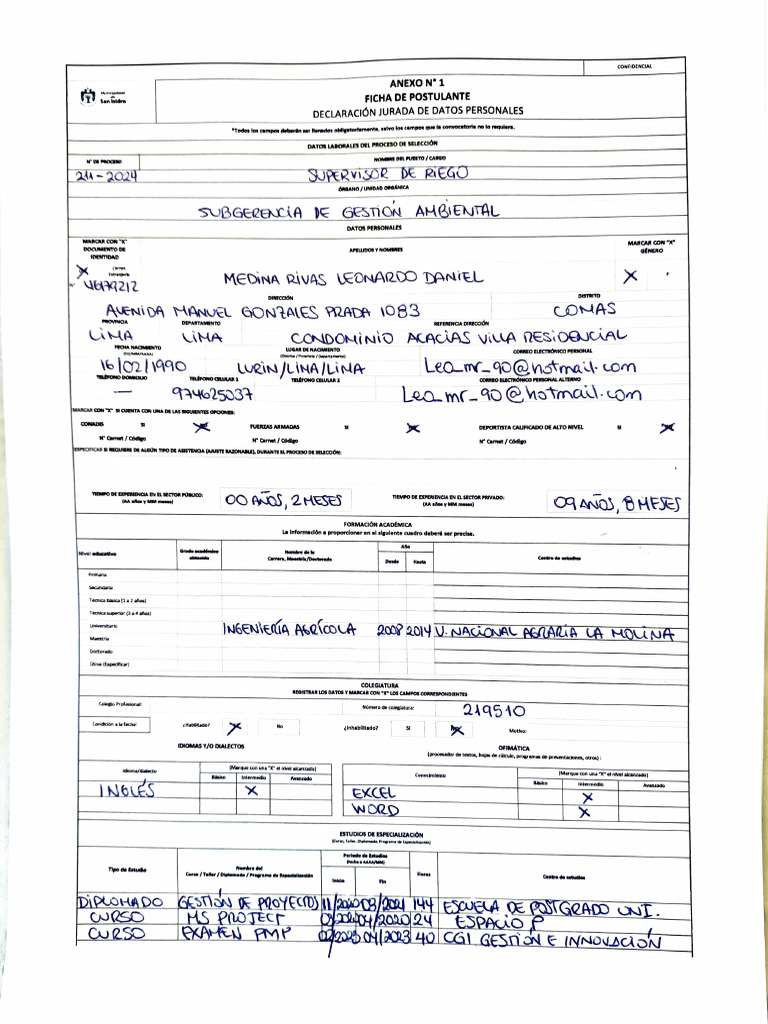 CONFIDENCIAL
Municipalidad
de
San Isidro
ANEXO N° 1
FICHA DE POSTULANTE
DECLARACIÓN JURADA DE DATOS PERSONALES
*Todos los campos deberán ser llenados obligatoriamente, salvo los campos que la convocatoria no lo requiera.
DATOS LABORALES DEL PROCESO DE SELECCIÓN
N° DE PROCESO NOMBRE DEL PUESTO / CARGO
211-2024 SUPERVISOR DE RIEGO
ÓRGANO / UNIDAD ORGÁNICA
SUBGERENCIA DE GESTIÓN AMBIENTAL
DATOS PERSONALES
MARCAR CON "X" DOCUMENTO DE IDENTIDAD APELLIDOS Y NOMBRES MARCAR CON "X" GÉNERO
X Carnet Extranjería X
N° 46179212 MEDINA RIVAS LEONARDO DANIEL
DIRECCIÓN DISTRITO
AVENIDA MANUEL GONZALES PRADA 1083 COMAS
PROVINCIA DEPARTAMENTO REFERENCIA DIRECCIÓN
LIMA LIMA CONDOMINIO ACACIAS VILLA RESIDENCIAL
FECHA NACIMIENTO (DD/MM/AAAA) LUGAR DE NACIMIENTO (Distrito / Provincia / Departamento) CORREO ELECTRÓNICO PERSONAL
16/02/1990 LURIN/LIMA/LIMA Leo_mr_90@hotmail.com
TELÉFONO DOMICILIO TELÉFONO CELULAR 1 TELÉFONO CELULAR 2 CORREO ELECTRÓNICO PERSONAL ALTERNO
— 974625037 Leo_mr_90@hotmail.com
MARCAR CON "X" SI CUENTA CON UNA DE LAS SIGUIENTES OPCIONES:
CONADIS SI X FUERZAS ARMADAS SI X DEPORTISTA CALIFICADO DE ALTO NIVEL SI X
N° Carnet / Código N° Carnet / Código N° Carnet / Código
ESPECIFICAR SI REQUIERE DE ALGÚN TIPO DE ASISTENCIA (AJUSTE RAZONABLE), DURANTE EL PROCESO DE SELECCIÓN:
TIEMPO DE EXPERIENCIA EN EL SECTOR PÚBLICO: (AA años y MM meses) 00 AÑOS, 2 MESES TIEMPO DE EXPERIENCIA EN EL SECTOR PRIVADO: (AA años y MM meses) 09 AÑOS, 8 MESES
FORMACIÓN ACADÉMICA
La información a proporcionar en el siguiente cuadro deberá ser precisa.
Nivel educativo Grado académico obtenido Nombre de la Carrera, Maestría/Doctorado Año Desde Hasta Centro de estudios
Primaria
Secundaria
Técnica básica (1 a 2 años)
Técnica superior (3 a 4 años)
Universitario INGENIERÍA AGRÍCOLA 2008 2014 U. NACIONAL AGRARIA LA MOLINA
Maestría
Doctorado
Otros (Especificar)
COLEGIATURA
REGISTRAR LOS DATOS Y MARCAR CON "X" LOS CAMPOS CORRESPONDIENTES
Colegio Profesional: Número de colegiatura: 219510
Condición a la fecha: ¿Habilitado? X No ¿Inhabilitado? SI X Motivo:
IDIOMAS Y/O DIALECTOS OFIMÁTICA
(procesador de textos, hojas de cálculo, programas de presentaciones, otros)
Idioma/dialecto (Marque con una "X" el nivel alcanzado) Conocimiento (Marque con una "X" el nivel alcanzado)
Básico Intermedio Avanzado Básico Intermedio Avanzado
INGLÉS X EXCEL X
WORD X
ESTUDIOS DE ESPECIALIZACIÓN
(Curso, Taller, Diplomado, Programa de Especialización)
Tipo de Estudio Nombre del Curso / Taller / Diplomado / Programa de Especialización Periodo de Estudios (Fecha a AAAA/MM) Inicio Fin Horas Centro de estudios
DIPLOMADO GESTIÓN DE PROYECTOS 11/2020 03/2021 144 ESCUELA DE POSTGRADO UNI.
CURSO MS PROJECT 04/2020 24 ESPACIO P
CURSO EXAMEN PMP 02/2023 04/2023 40 CGI GESTIÓN E INNOVACIÓN